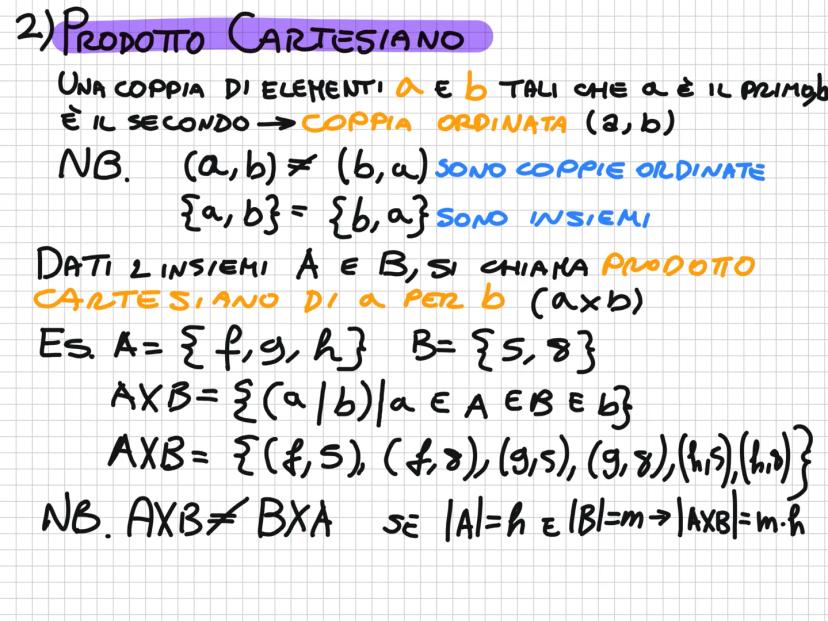 2) PRODOTTO CARTESIANO
UNA COPPIA DI ELEMENTI a E b TALI CHE a È IL PRIMO, b
È IL SECONDO → COPPIA ORDINATA (a,b)
NB. (a,b) ≠ (b,a) SONO COPPIE ORDINATE
{a,b} = {b,a} SONO INSIEMI
DATI 2 INSIEMI A E B, SI CHIAMA PRODOTTO
CARTESIANO DI a PER b (axb)
ES. A= {f,g,h} B= {5,8}
AXB= {(a|b)|a ∈ A E B ∈ b}
AXB= {(f,5), (f,8), (g,5), (g,8), (h,5), (h,8)}
NB. AXB ≠ BXA SE |A|=h E |B|=m → |AXB|=m·h